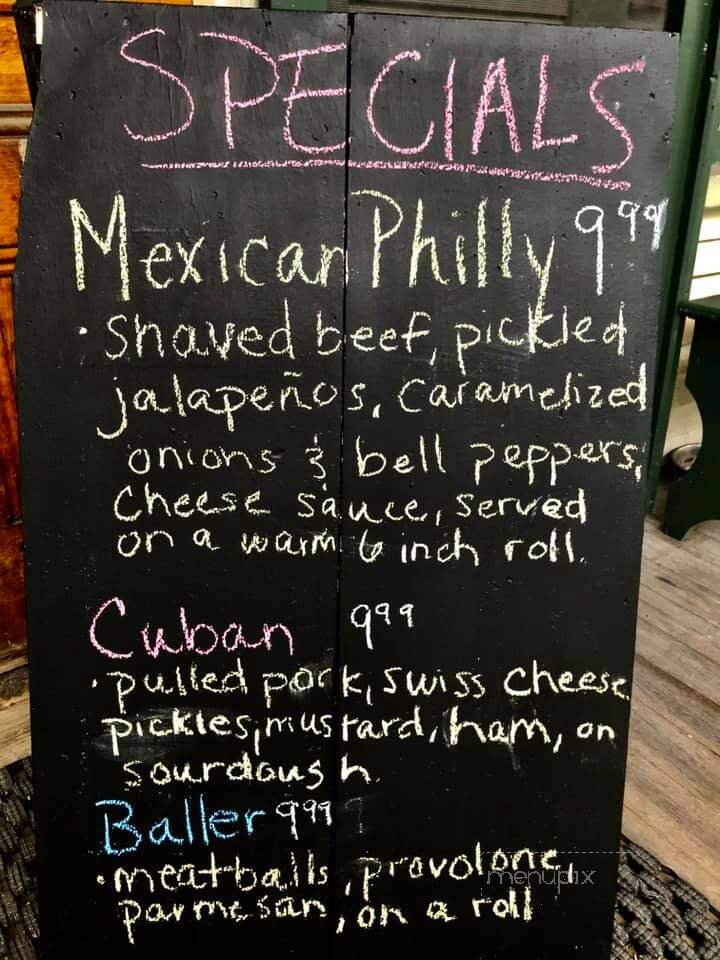 SPECIALS
Mexican Philly 9 99
• shaved beef, pickled
jalapeños, caramelized
onions & bell peppers,
cheese sauce, served
on a warm 6 inch roll.
Cuban 9 99
• pulled pork, swiss cheese
pickles, mustard, ham, on
sourdough.
Baller 9 99
• meatballs, provolone,
parmesan, on a roll
menupix